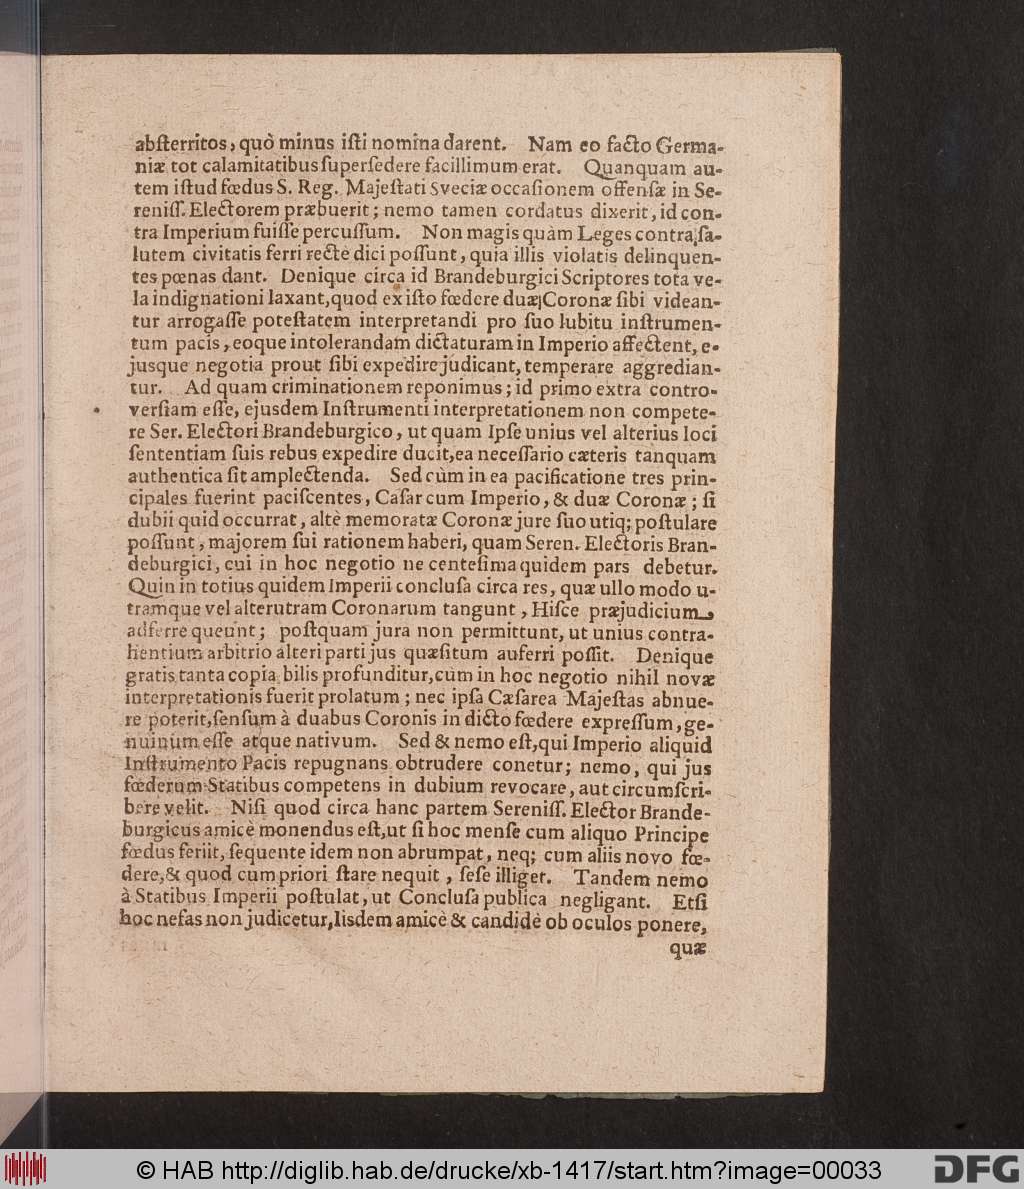 abſterritos, quò minus iſti nomina darent. Nam eo facto Germa-
niæ tot calamitatibus ſuperſedere facillimum erat. Quanquam au-
tem iſtud fœdus S. Reg. Majeſtati Sveciæ occaſionem offenſæ in Se-
reniſſ. Electorem præbuerit; nemo tamen cordatus dixerit, id con-
tra Imperium fuiſſe percuſſum. Non magis quàm Leges contra ſa-
lutem civitatis ferri rectè dici poſſunt, quia illis violatis delinquen-
tes pœnas dant. Denique circa id Brandeburgici Scriptores tota ve-
la indignationi laxant, quod ex iſto fœdere duæ Coronæ ſibi videan-
tur arrogaſſe poteſtatem interpretandi pro ſuo lubitu inſtrumen-
tum pacis, eoque intolerandam dictaturam in Imperio affectent, e-
jusque negotia prout ſibi expedire judicant, temperare aggredian-
tur. Ad quam criminationem reponimus; id primo extra contro-
verſiam eſſe, ejusdem Inſtrumenti interpretationem non compete-
re Ser. Electori Brandeburgico, ut quam Ipſe unius vel alterius loci
ſententiam ſuis rebus expedire ducit, ea neceſſario cæteris tanquam
authentica ſit amplectenda. Sed cùm in ea pacificatione tres prin-
cipales fuerint paciſcentes, Cæſar cum Imperio, & duæ Coronæ; ſi
dubii quid occurrat, altè memoratæ Coronæ jure ſuo utiq; poſtulare
poſſunt, majorem ſui rationem haberi, quam Seren. Electoris Bran-
deburgici, cui in hoc negotio ne centeſima quidem pars debetur.
Quin in totius quidem Imperii concluſa circa res, quæ ullo modo u-
tramque vel alterutram Coronarum tangunt, Hiſce præjudicium
adferre queunt; poſtquam jura non permittunt, ut unius contra-
hentium arbitrio alteri parti jus quæſitum auferri poſſit. Denique
gratis tanta copia bilis profunditur, cùm in hoc negotio nihil novæ
interpretationis fuerit prolatum; nec ipſa Cæſarea Majeſtas abnue-
re poterit, ſenſum à duabus Coronis in dicto fœdere expreſſum, ge-
nuinum eſſe atque nativum. Sed & nemo eſt, qui Imperio aliquid
Inſtrumento Pacis repugnans obtrudere conetur; nemo, qui jus
fœderum Statibus competens in dubium revocare, aut circumſcri-
bere velit. Niſi quod circa hanc partem Sereniſſ. Elector Brande-
burgicus amicè monendus eſt, ut ſi hoc menſe cum aliquo Principe
fœdus feriit, ſequente idem non abrumpat, neq; cum aliis novo fœ-
dere, & quod cum priori ſtare nequit, ſeſe illiget. Tandem nemo
à Statibus Imperii poſtulat, ut Concluſa publica negligant. Etſi
hoc nefas non judicetur, Iisdem amicè & candidè ob oculos ponere,
quæ
© HAB http://diglib.hab.de/drucke/xb-1417/start.htm?image=00033
DFG